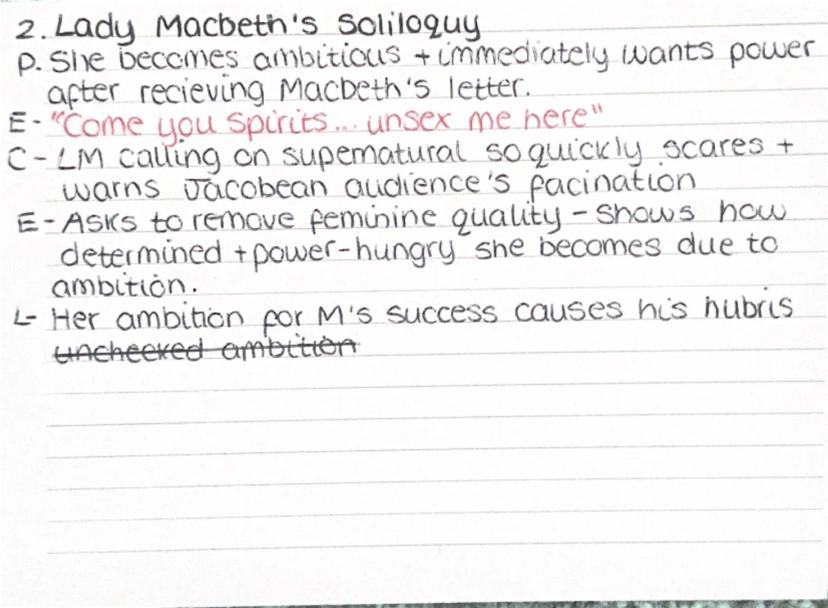 2. Lady Macbeth's Soliloquy
P. She becomes ambitious + immediately wants power
after recieving Macbeth's letter.
E - "Come you spirits... unsex me here"
C - LM calling on supernatural so quickly scares +
warns Jacobean audience's facination
E - Asks to remove feminine quality - shows how
determined + power-hungry she becomes due to
ambition.
L - Her ambition for M's success causes his hubris
unchecked ambition